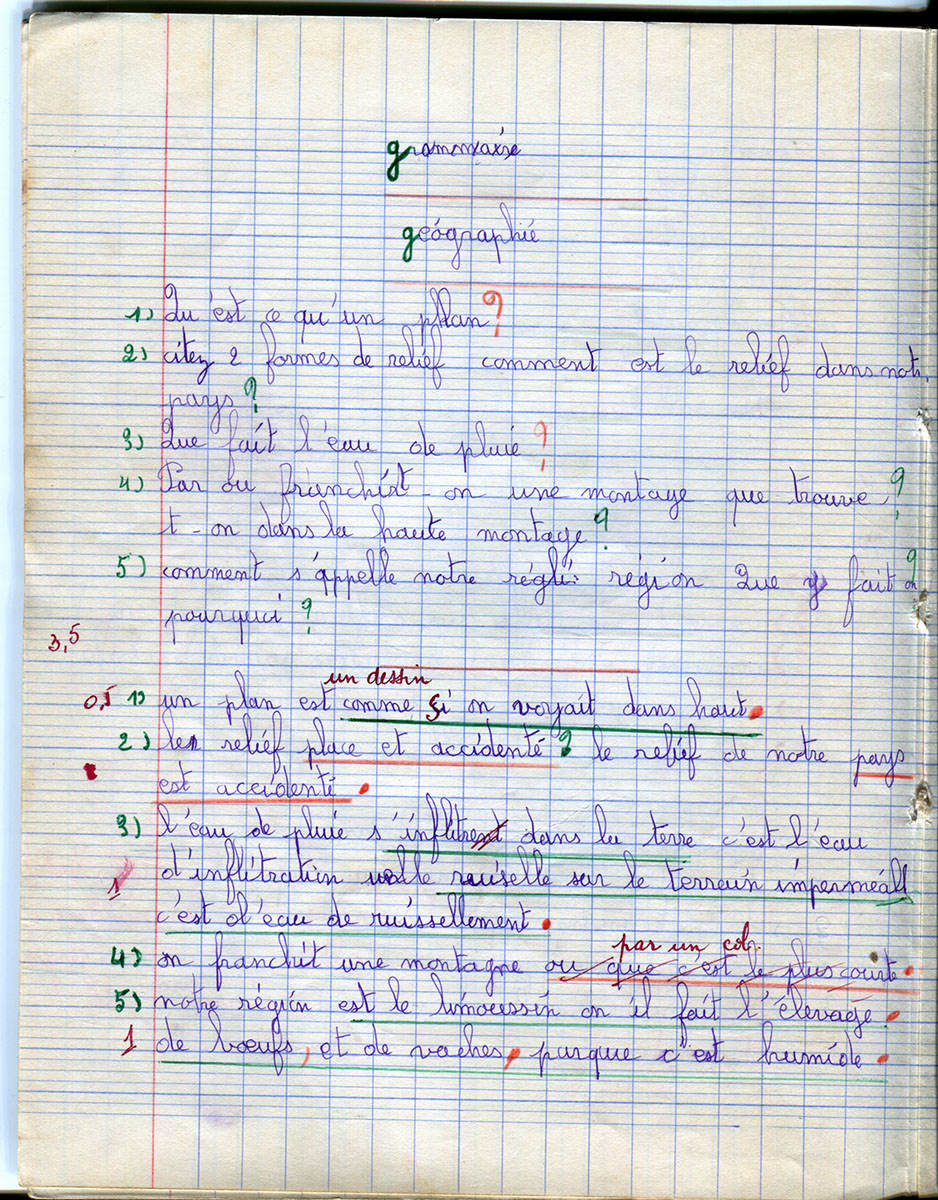 grammaire
géographié
1) Qu'est ce qu'un plan ?
2) citez 2 formes de reliéf comment est le reliéf dans notr
pays ?
3) Que fait l'eau de pluie ?
4) Par ou franchit-on une montage que trouve, ?
t-on dans la haute montage ?
5) comment s'appelle notre régli: région Que y fait on ?
pourquoi ?
3,5
un dessin
0,5 1) un plan est comme si on voyait dans haut.
2) le reliéf place et accidenté ? le reliéf de notre pays
1
est accidenté.
3) l'eau de pluie s'inflitrent dans la terre c'est l'eau
d'inflitration ruiselle sur le terrain impérméabl
1
c'est d'eau de ruissellement.
par un col.
4) on franchit une montagne ou que c'est le plus courte.
5) notre région est le limoussin on il fait l'élevage.
1 de bœufs, et de vaches, parque c'est humide.